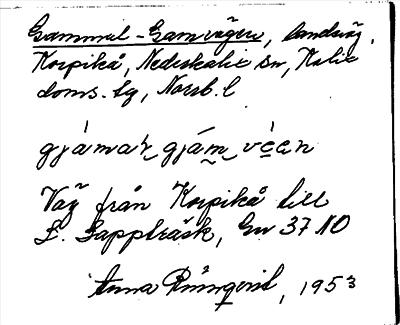 Gammal-Gamvägen, landsväg,
Korpikå, Nederkalix sn, Kalix
doms. tg, Norrb. l
gjámar gjám vèɛn
Väg från Korpikå till
L. Lappträsk, Gu 37 NO
Anna Rönnqvist, 1953